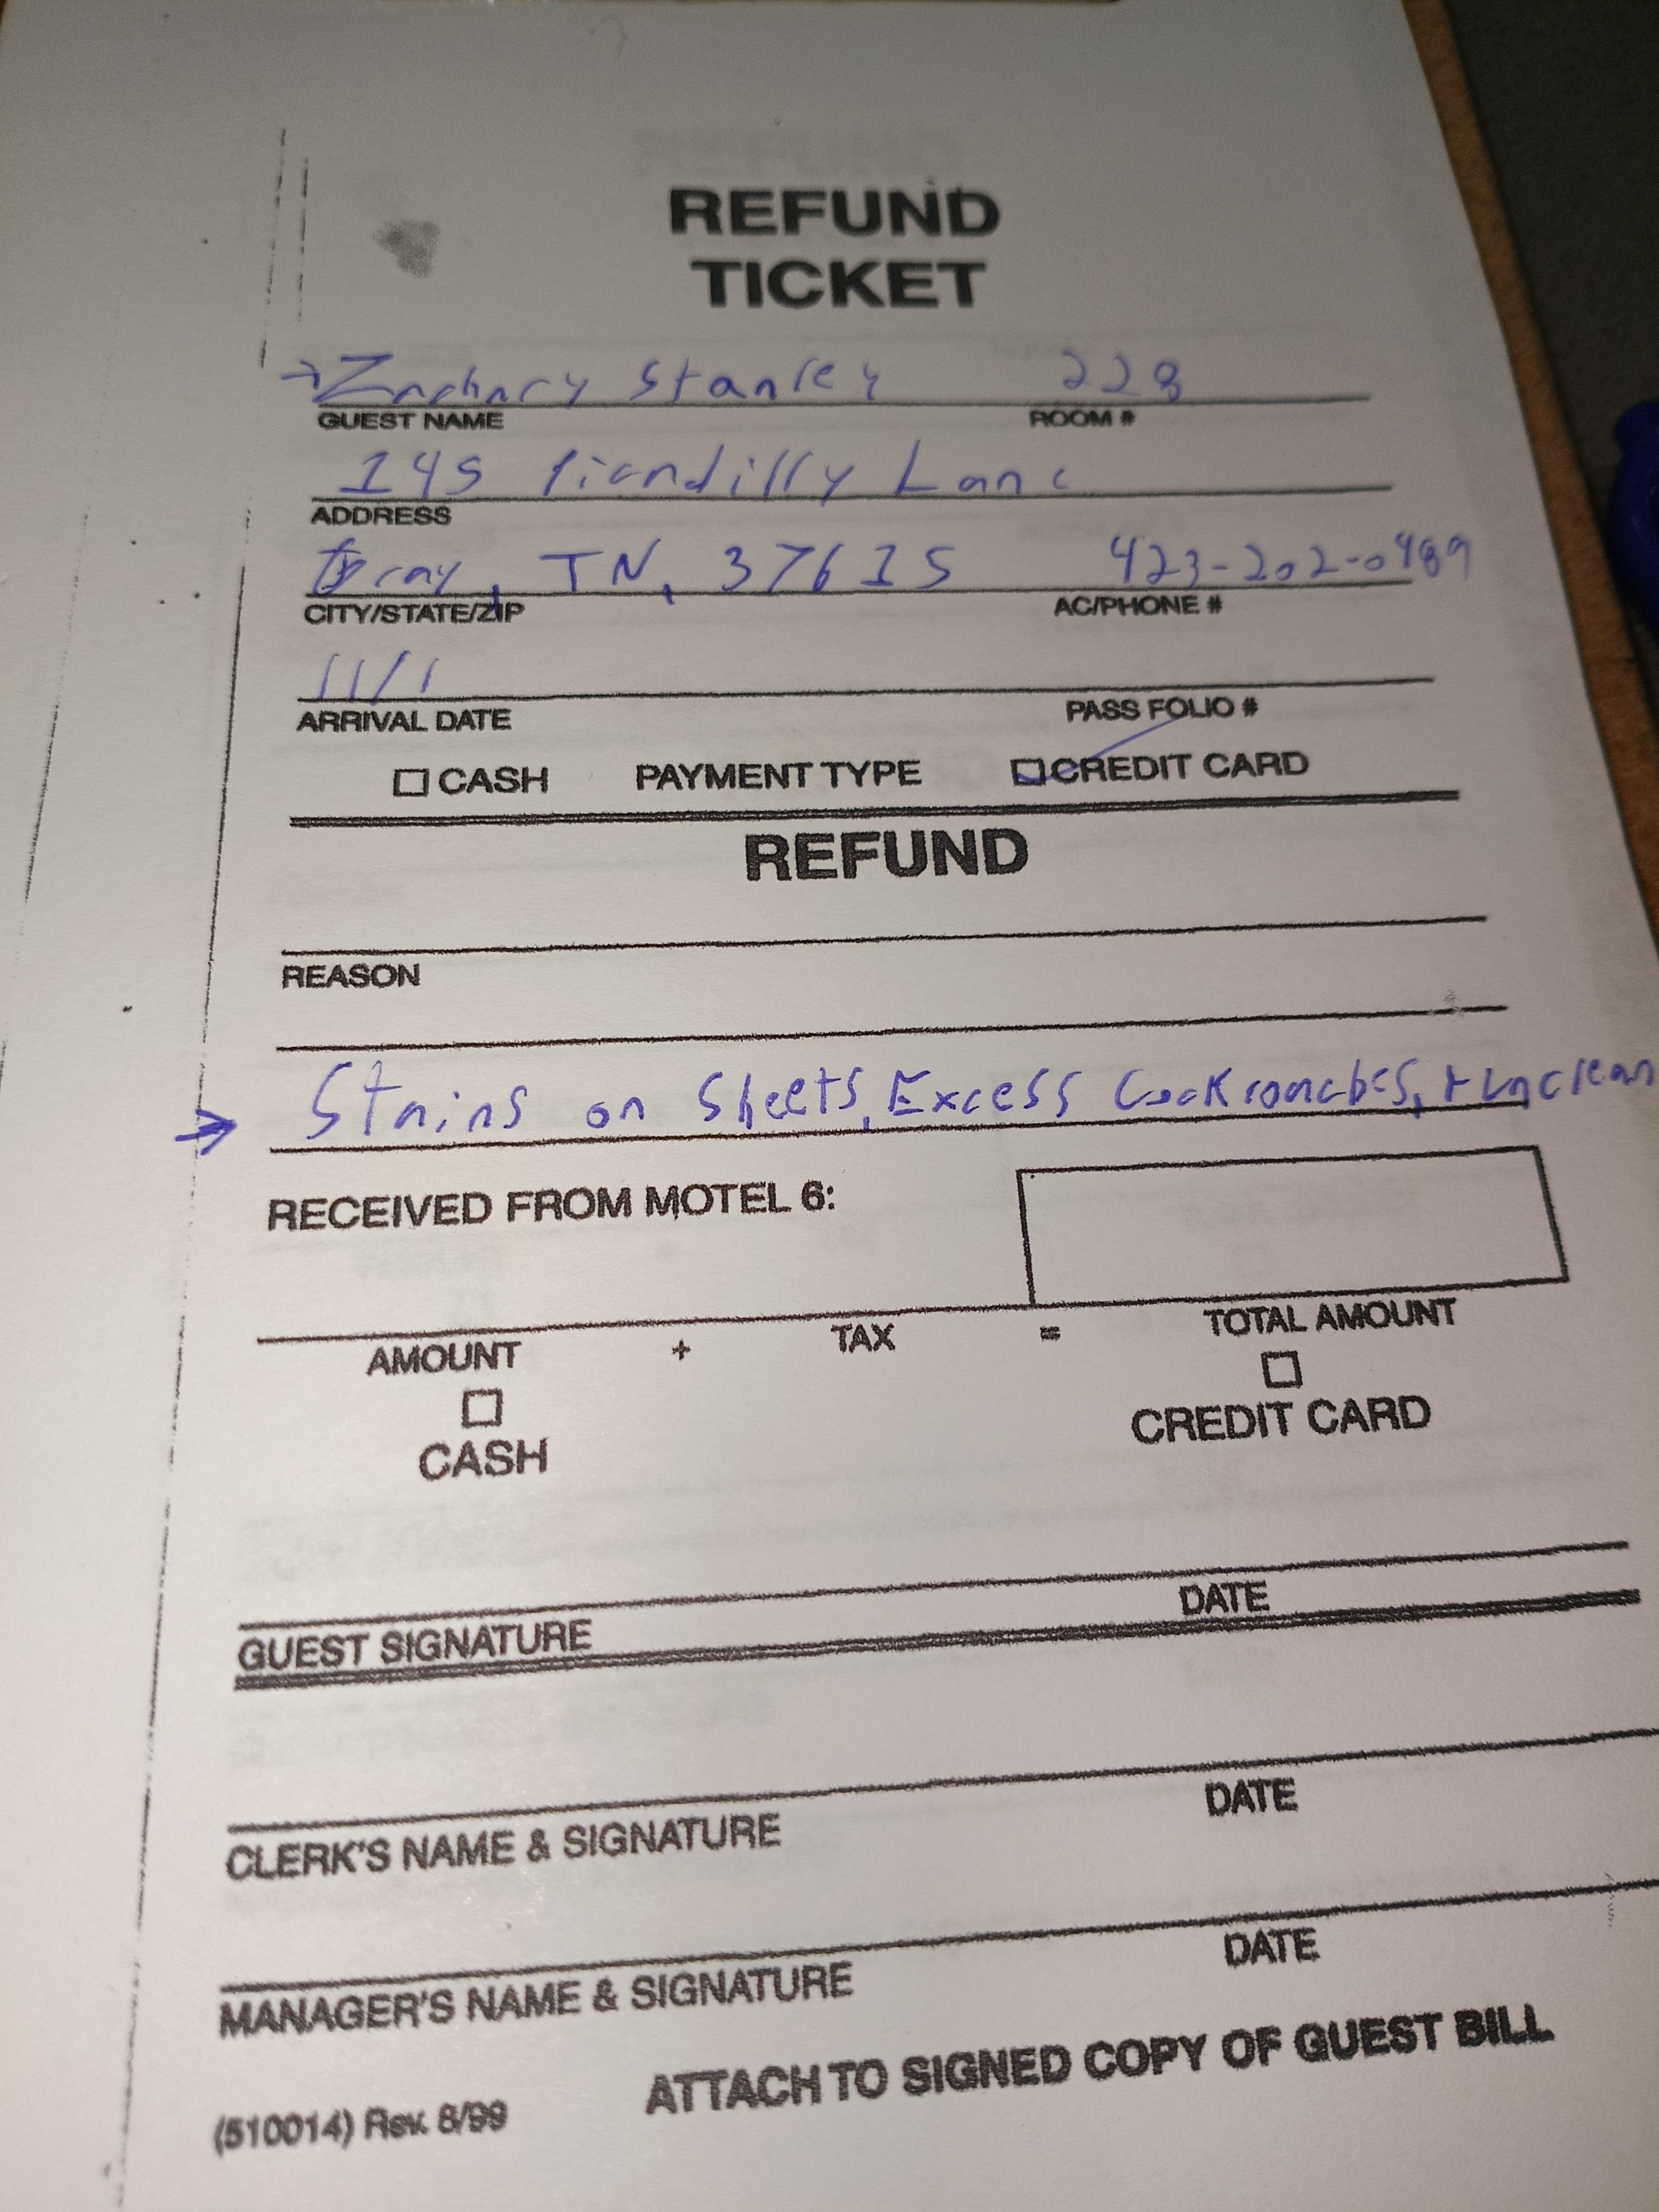 REFUND
TICKET
→ Zachary Stanley 228
GUEST NAME ROOM #
145 Picadilly Lane
ADDRESS
Gray, TN, 37615 423-202-0489
CITY/STATE/ZIP AC/PHONE #
11/1
ARRIVAL DATE PASS FOLIO #
☐ CASH PAYMENT TYPE ☑ CREDIT CARD
REFUND
REASON
→ Stains on Sheets, Excess Cockroaches, + unclean
RECEIVED FROM MOTEL 6:
AMOUNT + TAX = TOTAL AMOUNT
☐ ☐
CASH CREDIT CARD
GUEST SIGNATURE DATE
CLERK'S NAME & SIGNATURE DATE
MANAGER'S NAME & SIGNATURE DATE
ATTACH TO SIGNED COPY OF GUEST BILL
(510014) Rev. 8/99